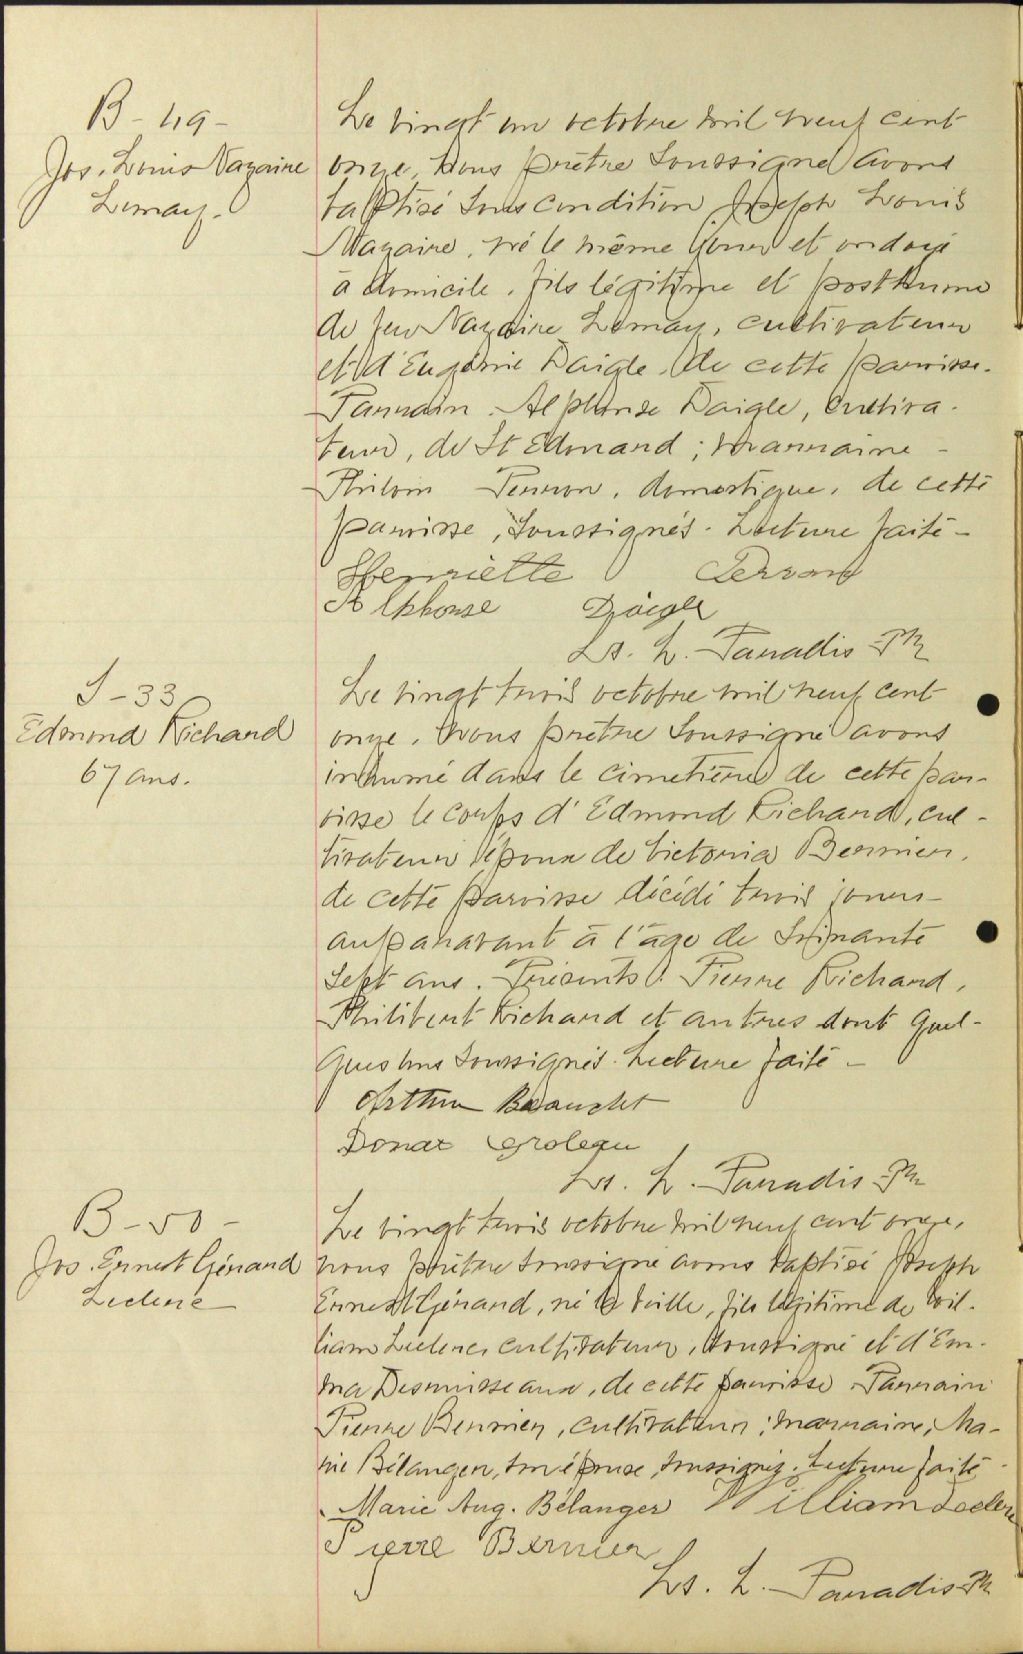 B - 49 -
Jos. Louis Nazaire
Lemay.
Le vingt un octobre mil neuf cent
onze, nous prêtre soussigné avons
baptisé sous condition Joseph Louis
Nazaire, né le même jour et ondoyé
à domicile, fils légitime et posthume
de feu Nazaire Lemay, cultivateur
et d'Eugénie Daigle, de cette paroisse.
Parrain. Alphonse Daigle, cultiva-
teur, de St Edouard; marraine -
Perron, domestique, de cette
paroisse, soussignés. Lecture faite -
Henriette Perron
Alphonse Daigle
Ls. L. Paradis Ptr
S - 33
Edmond Richard
67 ans.
Le vingt trois octobre mil neuf cent
onze, nous prêtre soussigné avons
inhumé dans le cimetière de cette par-
oisse le corps d'Edmond Richard, cul-
tivateur époux de Victoria Bernier,
de cette paroisse décédé trois jours
auparavant à l'âge de soixante
sept ans. Présents: Pierre Richard,
Philibert Richard et autres dont quel-
ques uns soussignés. Lecture faite -
Arthur Beaudet
Donat Groleau
Ls. L. Paradis Ptr
B - 50 -
Jos. Ernest Gérard
Leclerc
Le vingt trois octobre mil neuf cent onze,
nous prêtre soussigné avons baptisé Joseph
Ernest Gérard, né la veille, fils légitime de Wil-
liam Leclerc, cultivateur, soussigné et d'Em-
ma Desruisseaux, de cette paroisse. Parrain
Pierre Bernier, cultivateur; marraine, Ma-
rie Bélanger, son épouse, soussignés. Lecture faite -
Marie Aug. Bélanger William Leclerc
Pierre Bernier
Ls. L. Paradis Ptr